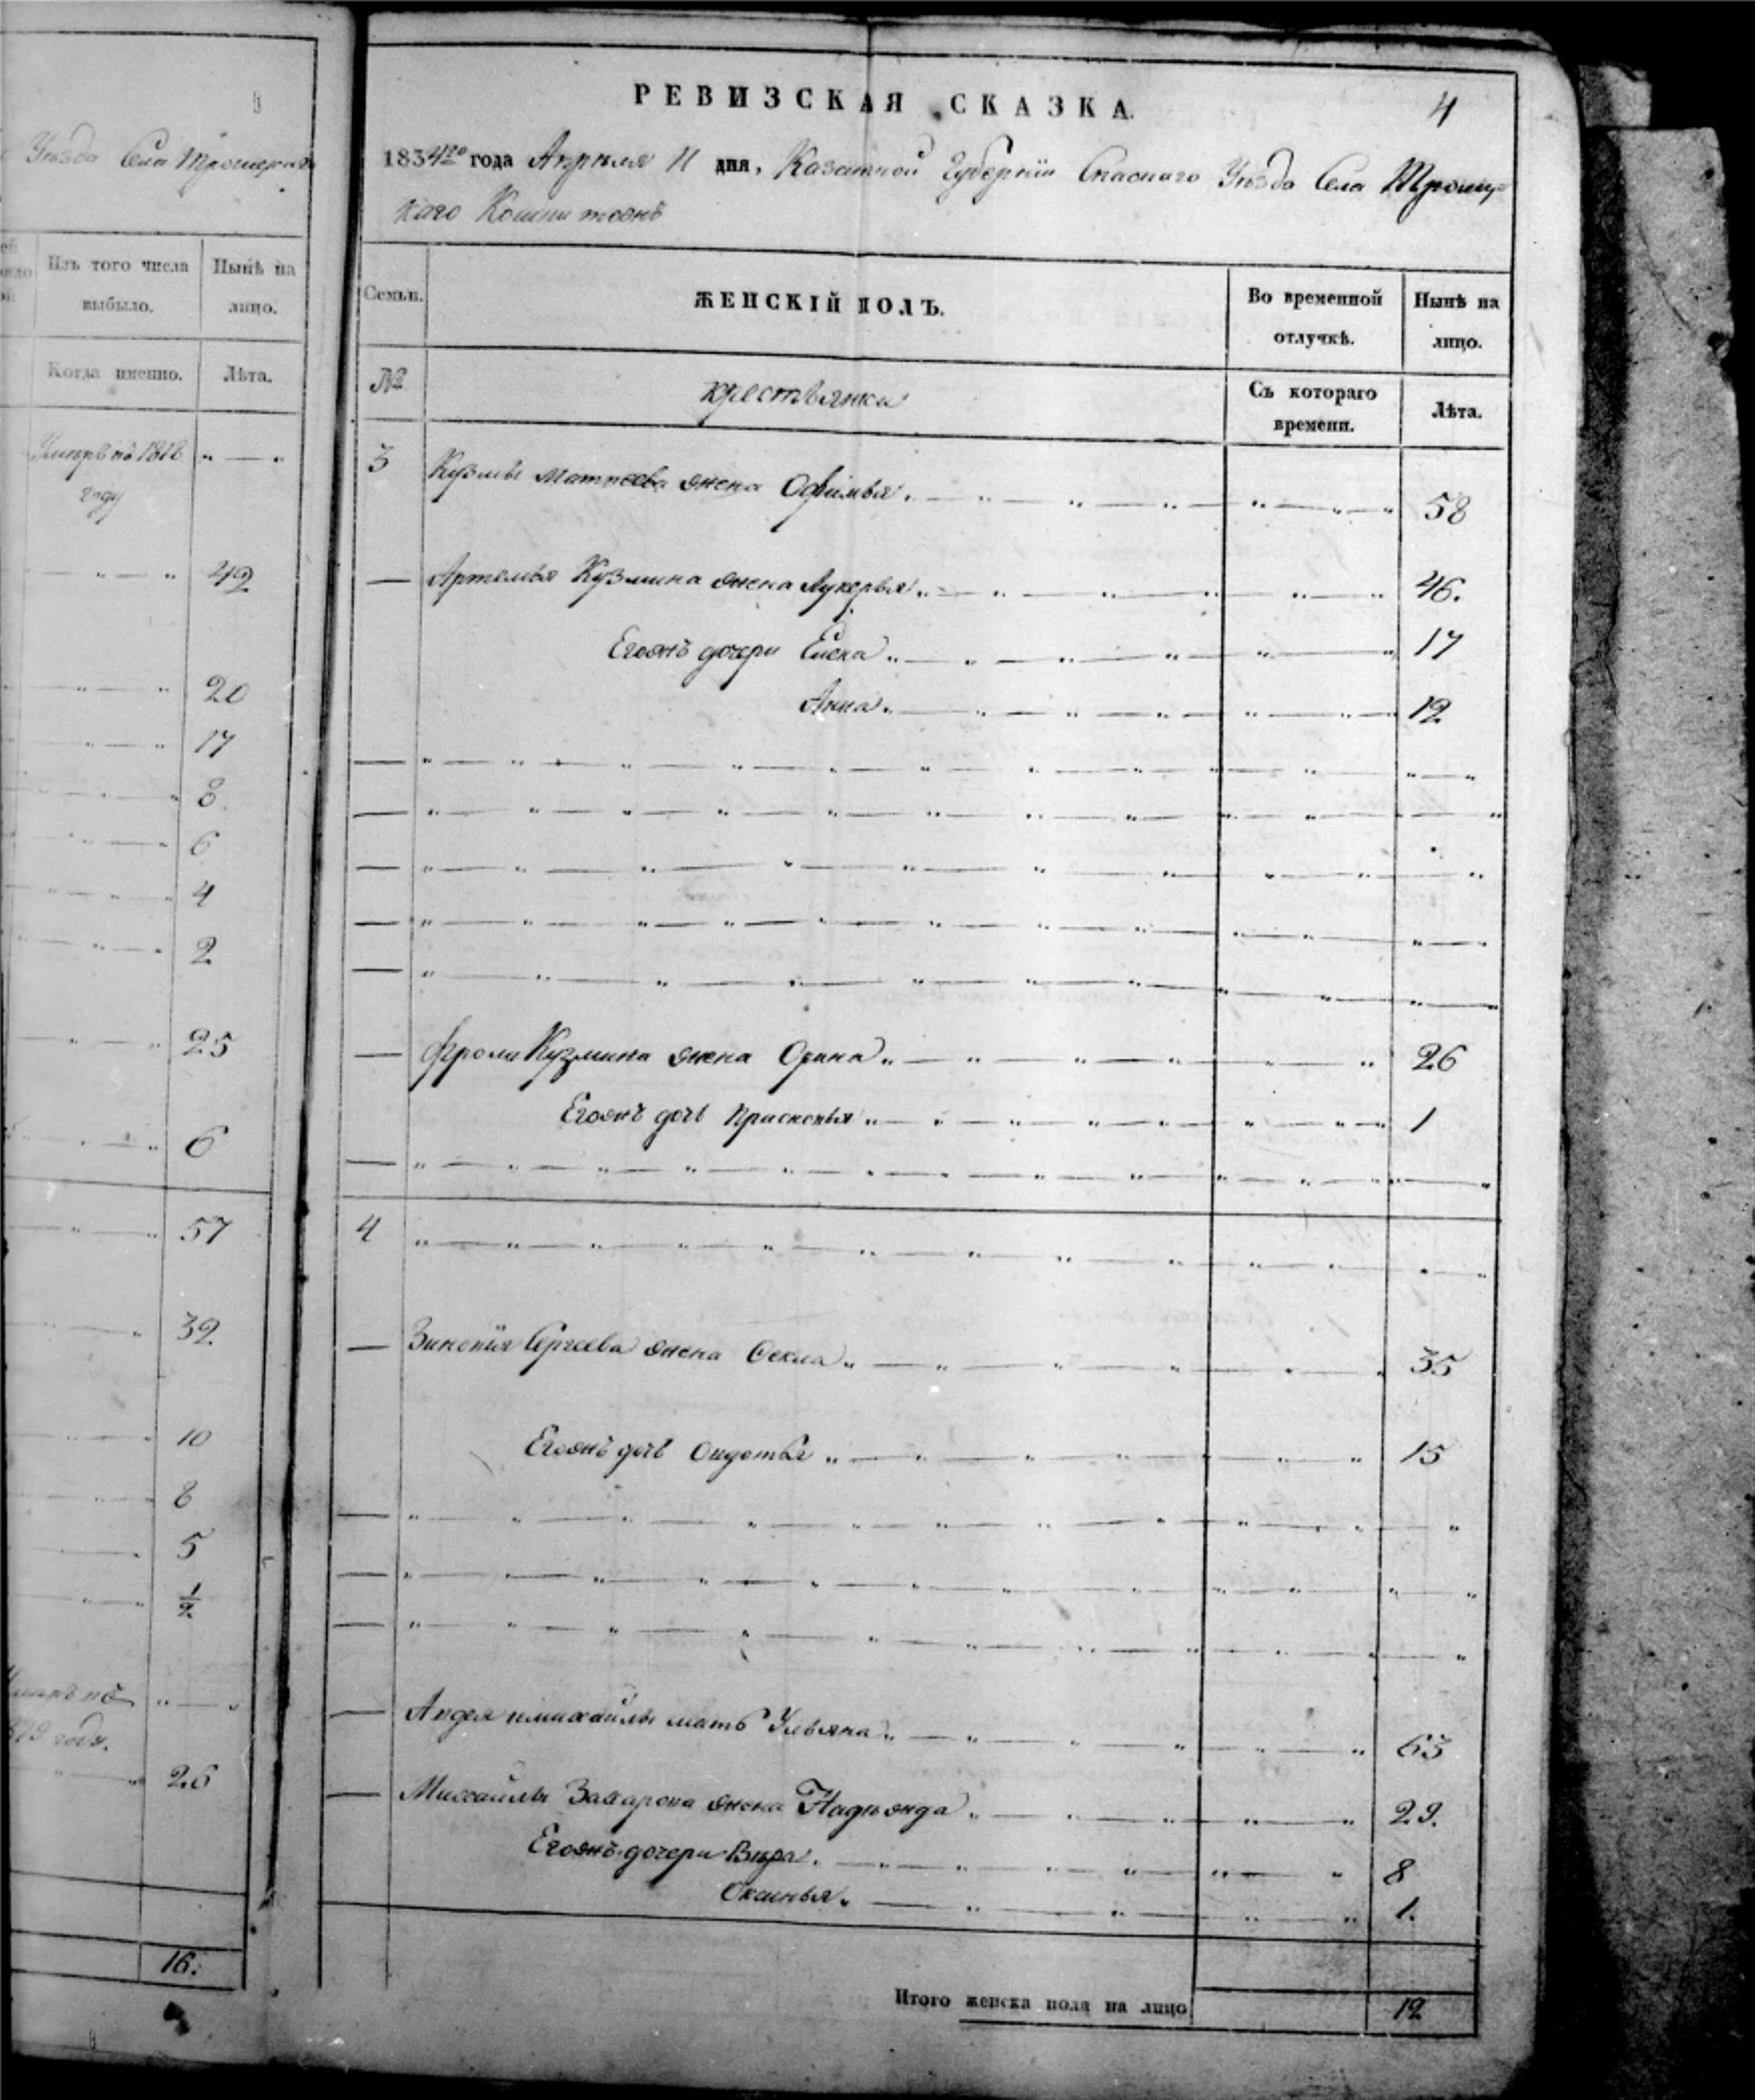 Уѣзда Села Троицкаго
Изъ того числа
выбыло.
Нынѣ на
лицо.
Когда именно.
Лѣта.
Умеръ въ 1818
году
42
20
17
8
6
4
2
25
6
57
32
10
8
5
1/2
26
16.
РЕВИЗСКАЯ СКАЗКА.
4
1834го года Апреля 11 дня, Казанской Губерніи Спаскаго Уѣзда Села Троиц-
каго
Семьи.
ЖЕНСКІЙ ПОЛЪ.
Во временной
отлучкѣ.
Нынѣ на
лицо.
№
крестьянка
Съ котораго
времени.
Лѣта.
3 Кузмы Матвеева жена Офимья 58
Артемья Кузмина жена Лукерья 46.
Егожъ дочери Елена 17
Анна 12
Фрола Кузмина жена Орина 26
Егожъ дочь Прасковья 1
4
Зиновия Сергеева жена Фекла 35
Егожъ дочь Овдотья 15
Авдея и Михайлы мать Ульяна 63
Михайлы Захарова жена Надѣжда 29.
Егожъ дочери Вѣра 8
Оксинья 1.
Итого женска пола на лицо 12